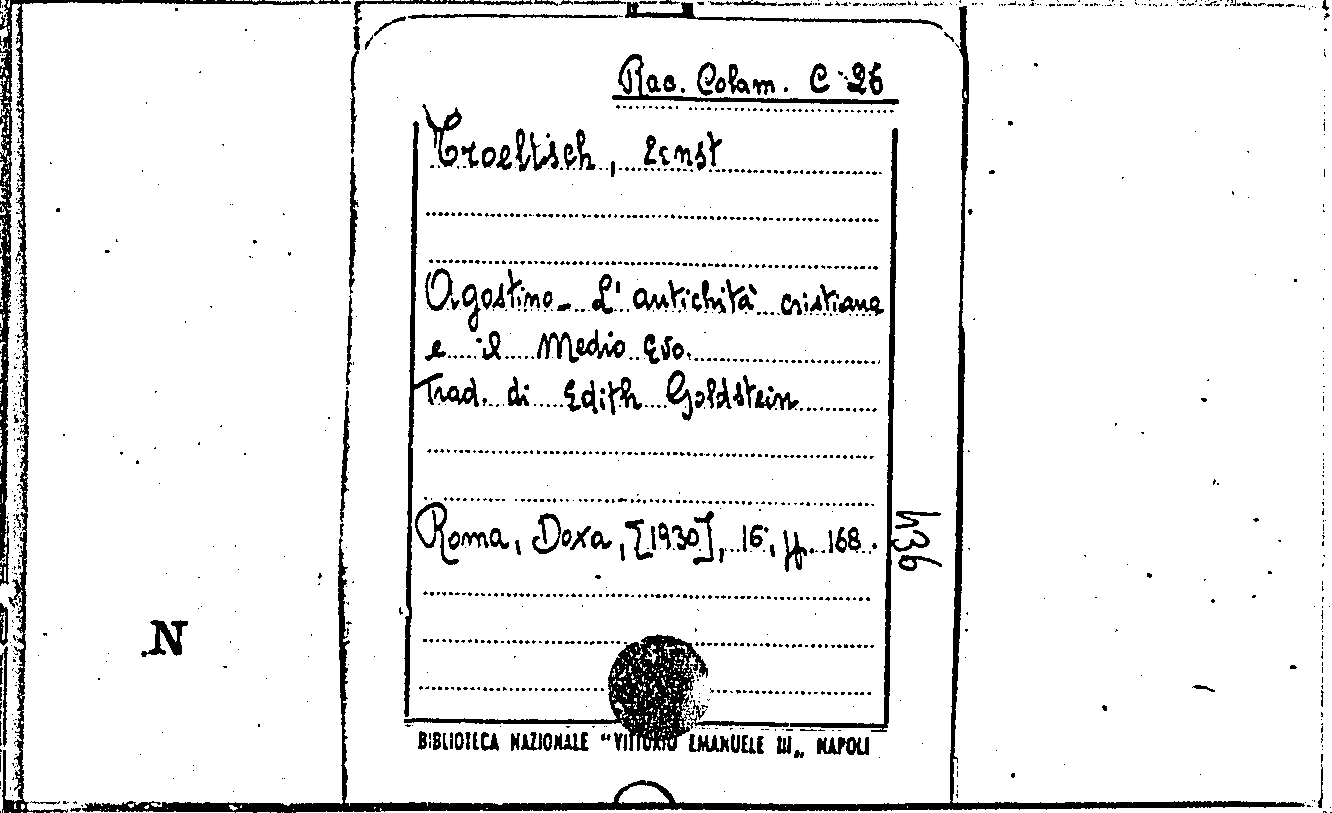 Rac. Colam. C 26
Troeltisch, Ernst
Agostino - L'antichità cristiana
e il Medio Evo.
Trad. di Edith Goldstein
Roma, Doxa, [1930], 16°, pp. 168.
436
N
BIBLIOTECA NAZIONALE "VITTORIO EMANUELE III„ NAPOLI